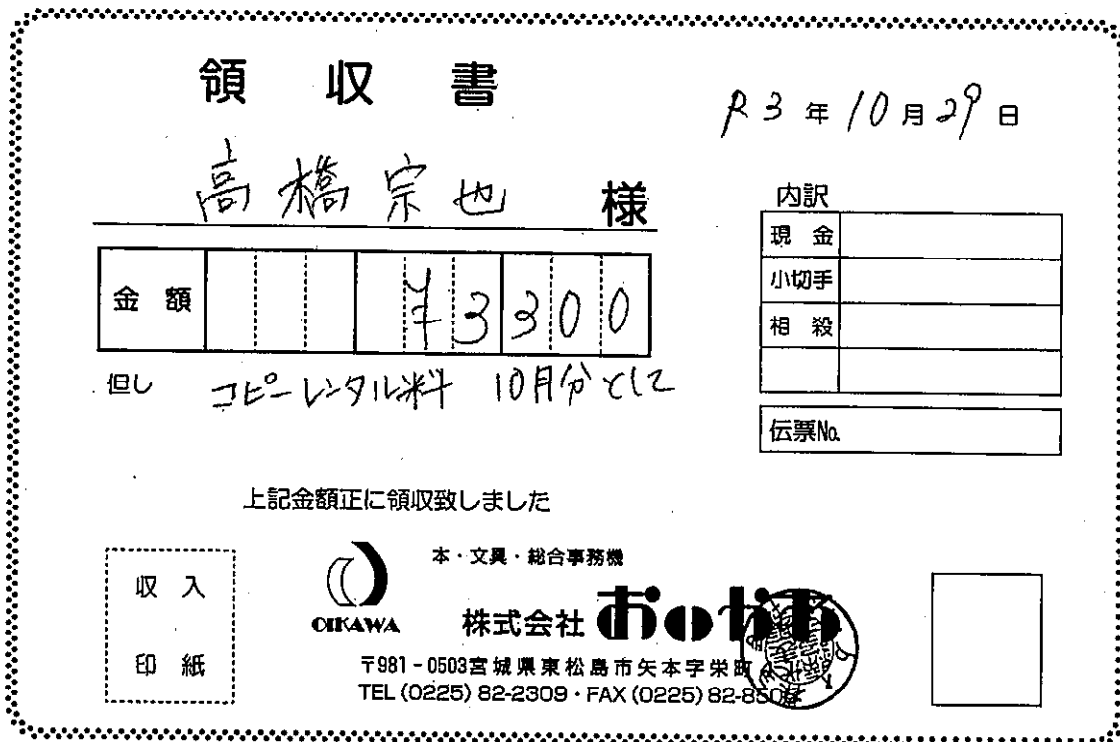 領収書
R3年10月29日
高橋宗也 様
内訳
現金
小切手
相殺
金額 ¥3300
但し コピーレンタル料 10月分として
伝票No.
上記金額正に領収致しました
収入
印紙
OIKAWA
本・文具・総合事務機
株式会社 おいかわ
〒981-0503宮城県東松島市矢本字栄町
TEL(0225)82-2309・FAX(0225)82-850